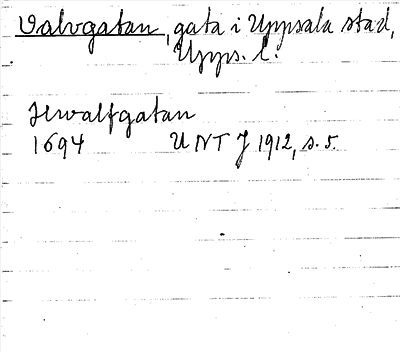 Valvgatan, gata i Uppsala stad,
Upps. l.
Hwalfgatan
1694 UNT J 1912, s. 5.